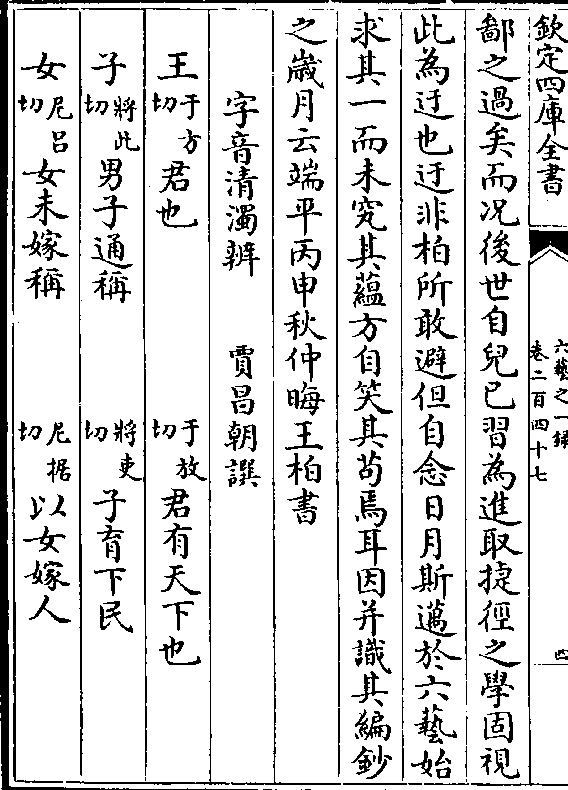 欽定四庫全書
六藝之一錄
卷二百四十七
四
鄙之過矣而况後世自兒已習為進取捷徑之學固視
此為迂也迂非柏所敢避但自念日月斯邁於六藝始
求其一而未究其蘊方自笑其苟焉耳因并識其編鈔
之歲月云端平丙申秋仲晦王柏書
字音清濁辨　賈昌朝譔
王于方切君也　于放切君有天下也
子將此切男子通稱　將吏切子育下民
女尼呂切女未嫁稱　尼据切以女嫁人